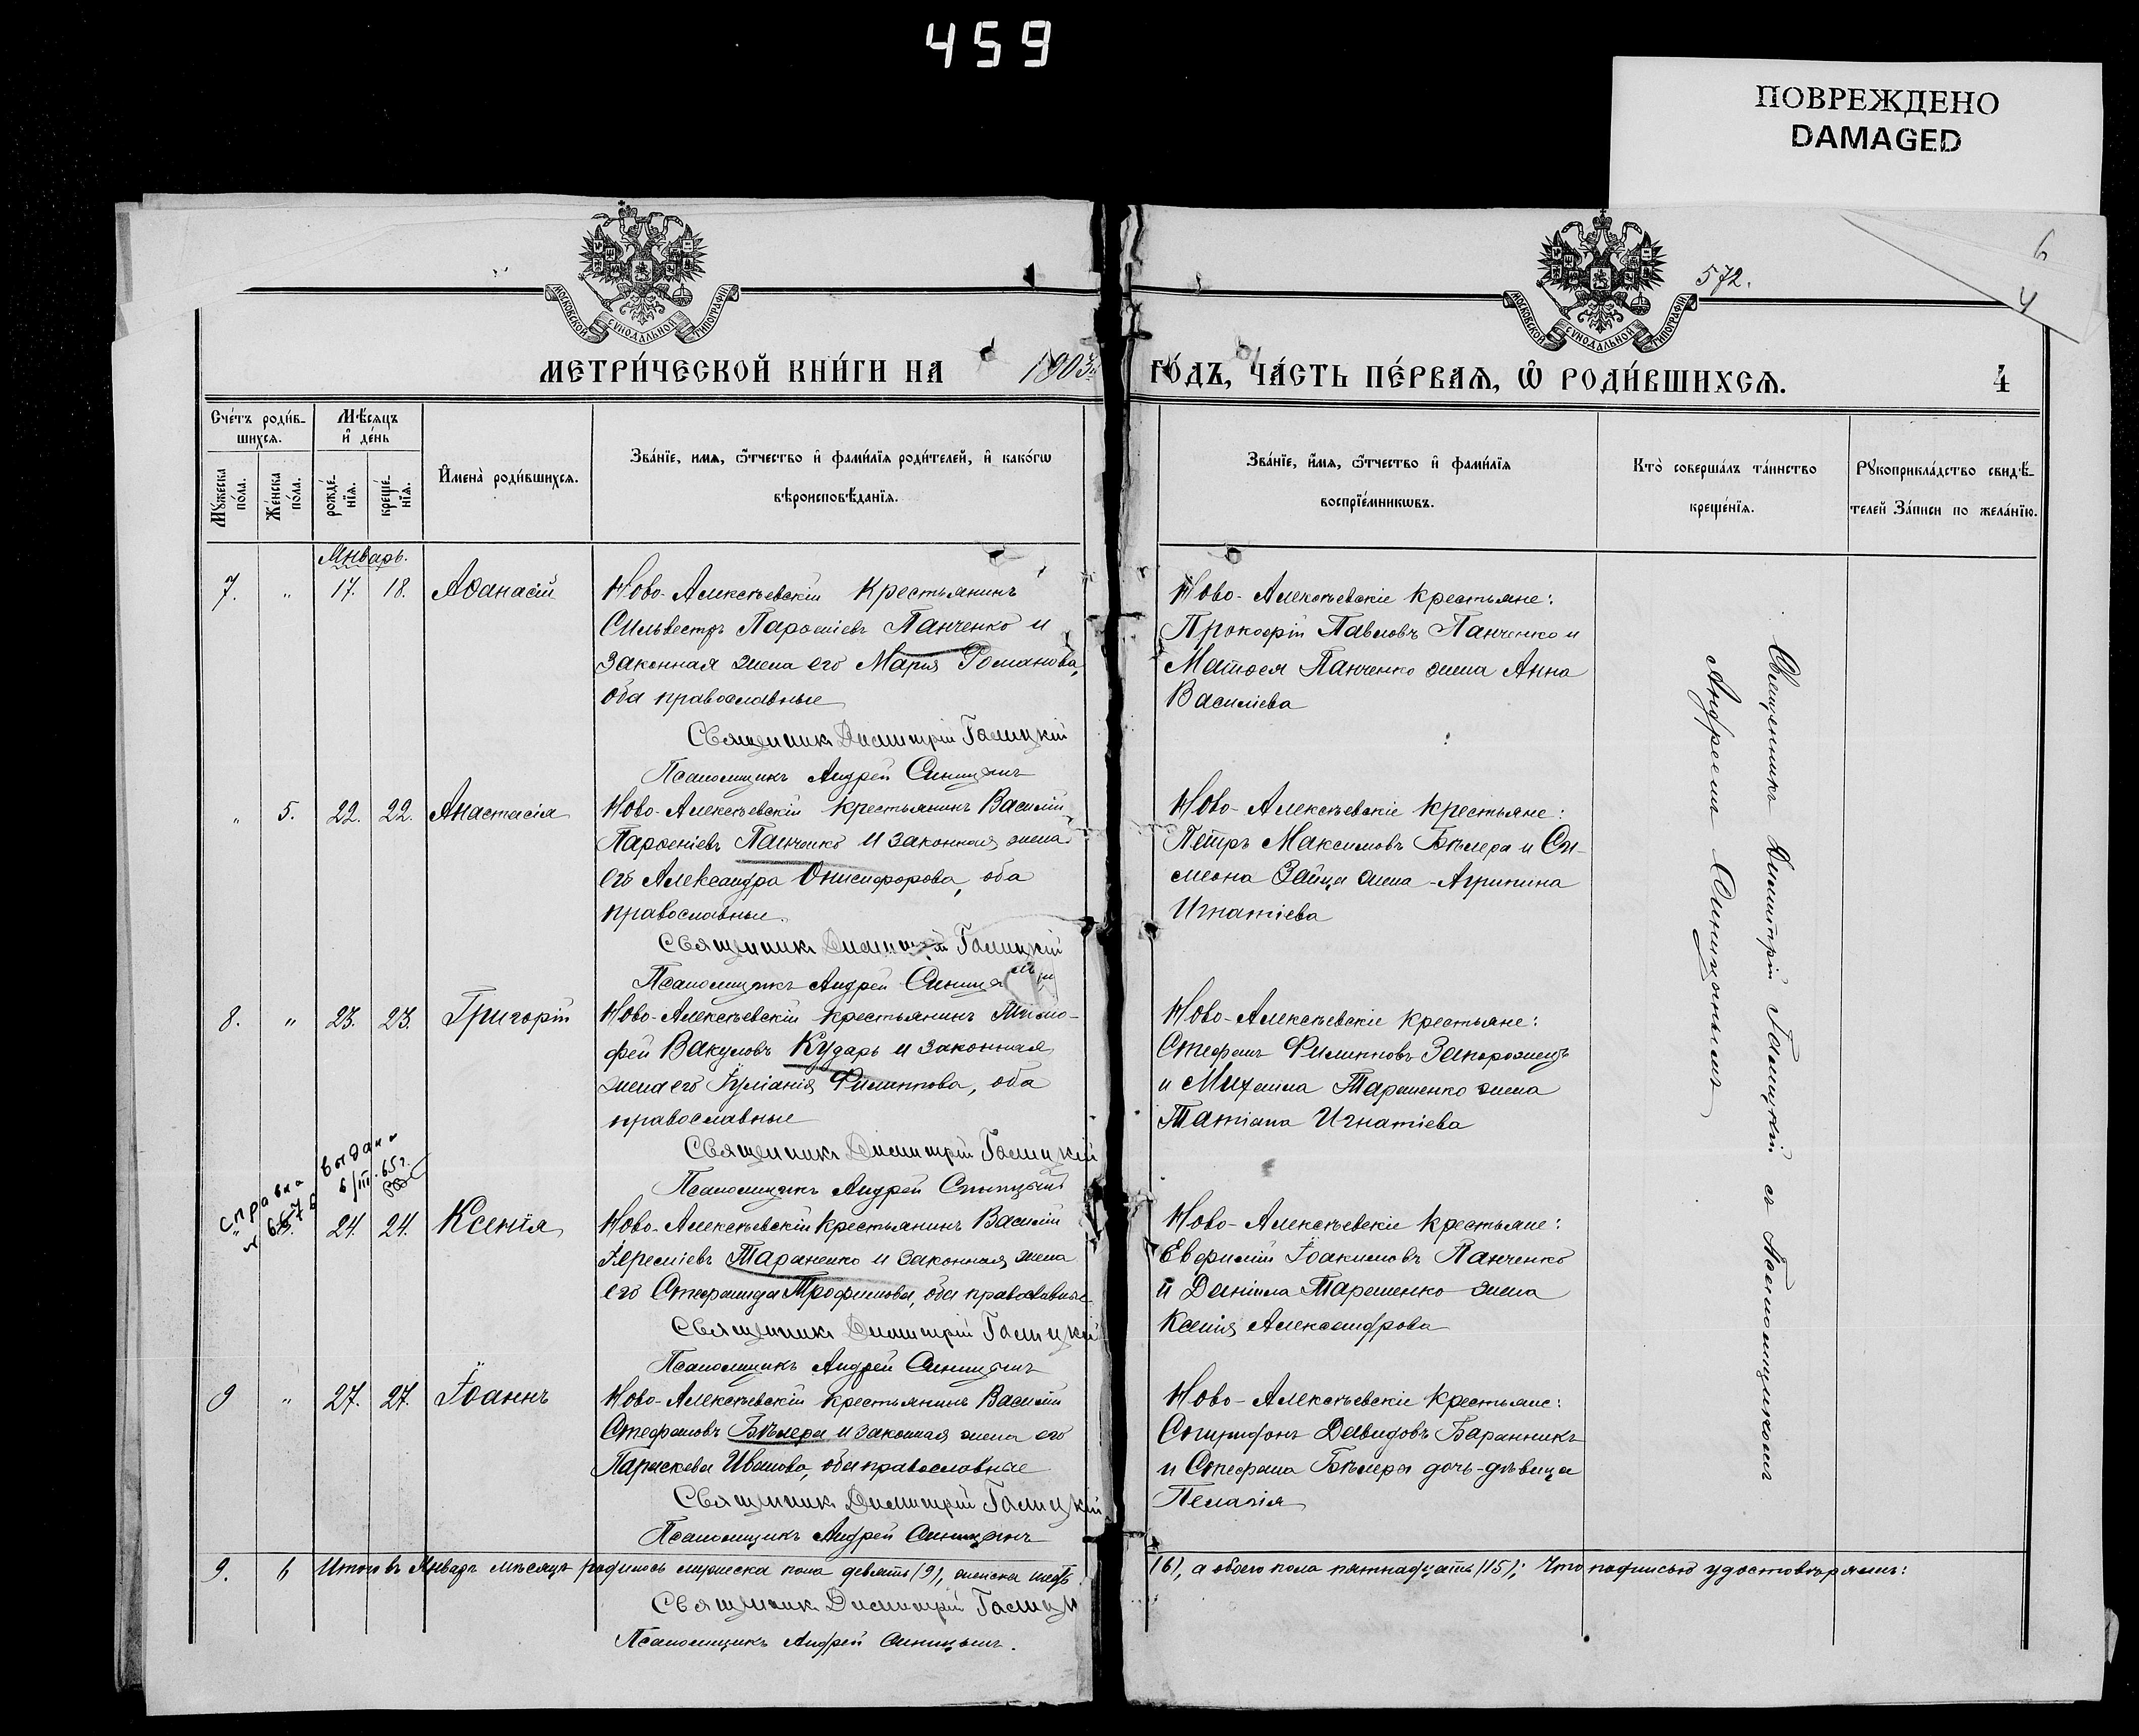 459
ПОВРЕЖДЕНО
DAMAGED
МОСКОВСКОЙ СУНОДАЛЬНОЙ ТИПОГРАФІИ
МОСКОВСКОЙ СУНОДАЛЬНОЙ ТИПОГРАФІИ
572.
6
4
МЕТРИ́ЧЕСКОЙ КНИ́ГИ НА 1903й ГО́ДЪ, ЧА́СТЬ ПЕ́РВАЯ, Ѡ РОДИ́ВШИХСЯ. 4
Сче́тъ роди́в-
шихся.
Мѣ́сяцъ
и҆ де́нь
Мꙋ́жеска
по́ла.
Же́нска
по́ла.
рожде́-
нїя.
креще́-
нїя.
И҆мена̀ роди́вшихся.
Зва́нїе, имя, ѻ҆́тчество и҆ фами́лїя роди́телей, и҆ како́гѡ
вѣроисповѣ́данїя.
Зва́нїе, и҆́мя, ѻ҆́тчество и҆ фами́лїя
воспрїе́мникѡвъ.
Кто̀ соверша́лъ та́инство
креще́нїя.
Рꙋкоприкла́дство свидѣ́-
телей За́писи по жела́нїю.
Январь.
7. " 17. 18. Аѳанасій
Ново-Алексѣевскій крестьянинъ
Сильвестръ Парѳеніевъ Панченко и
законная жена его Марія Романова,
оба православные
Священникъ Димитрій Галицкій
Псаломщикъ Андрей Синицынъ
Ново-Алексѣевскіе крестьяне:
Прокофій Павловъ Панченко и
Матѳея Панченко жена Анна
Василіева
" 5. 22. 22. Анастасія
Ново-Алексѣевскій крестьянинъ Василій
Парѳеніевъ Панченко и законная жена
его Александра Онисифорова, оба
православные.
Священникъ Димитрій Галицкій
Псаломщикъ Андрей Синицынъ
Ново-Алексѣевскіе крестьяне:
Петръ Максимовъ Бѣлера и Си-
меона Зайца жена Агрипина
Игнатіева
8. " 23. 23. Григорій
Ново-Алексѣевскій крестьянинъ Тимо-
фей Вакуловъ Кударь и законная
жена его Іуліанія Филиппова, оба
православные
Священникъ Димитрій Галицкій
Псаломщикъ Андрей Синицынъ
Ново-Алексѣевскіе крестьяне:
Стефанъ Филипповъ Запорожецъ
и Михаила Тараненко жена
Татіана Игнатіева
справка
выдана
6/III.65г.
" 24. 24. Ксенія
Ново-Алексѣевскій крестьянинъ Василій
Іереміевъ Тараненко и законная жена
его Стефанида Трофимова, оба православные
Священникъ Димитрій Галицкій
Псаломщикъ Андрей Синицынъ
Ново-Алексѣевскіе крестьяне:
Евфимій Іоакимовъ Панченко
и Даніила Тараненко жена
Ксенія Александрова
9 " 27. 27. Іоаннъ
Ново-Алексѣевскій крестьянинъ Василій
Стефановъ Бѣлера и законная жена его
Параскева Иванова, оба православные
Священникъ Димитрій Галицкій
Псаломщикъ Андрей Синицынъ
Ново-Алексѣевскіе крестьяне:
Спиридонъ Давидовъ Баранникъ
и Стефана Бѣлеры дочь-дѣвица
Пелагія
Священникъ Димитрій Галицкій съ Псаломщикомъ
Андреемъ Синицынымъ
9. 6 Итого въ Январѣ мѣсяцѣ родилось мужеска пола девять (9), женска шесть (6), а обоего пола пятнадцать (15); Что подписью удостовѣряемъ:
Священникъ Димитрій Галицкій
Псаломщикъ Андрей Синицынъ.